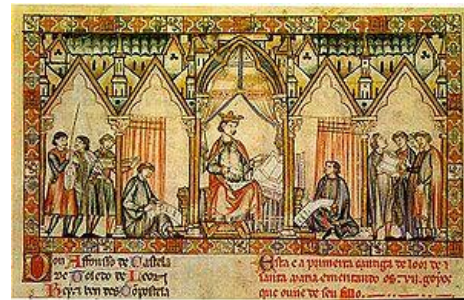 Don Affonsso de Castela
de Toledo de Leon
Rey e ben des Compostela
Esta e a primeira cantiga de loor de
santa maria ementando os .VII. goyos
que ouve de seu fillo